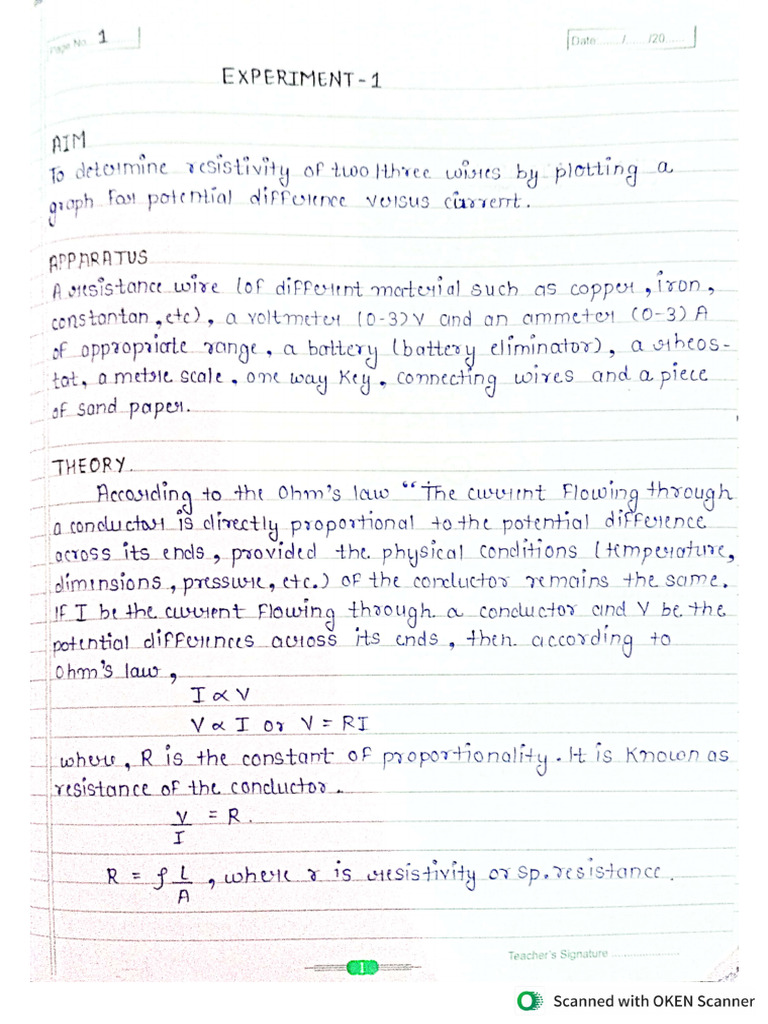 Page No. 1
Date....../....../20......
EXPERIMENT-1
AIM
To determine resistivity of two/three wires by plotting a
graph for potential difference versus current.
APPARATUS
A resistance wire (of different material such as copper, iron,
constantan, etc), a voltmeter (0-3)V and an ammeter (0-3) A
of appropriate range, a battery (battery eliminator), a rheos-
tat, a metre scale, one way key, connecting wires and a piece
of sand paper.
THEORY.
According to the Ohm's law "The current flowing through
a conductor is directly proportional to the potential difference
across its ends, provided the physical conditions (temperature,
dimensions, pressure, etc.) of the conductor remains the same.
If I be the current flowing through a conductor and V be the
potential differences across its ends, then according to
Ohm's law,
I ∝ V
V ∝ I or V = RI
where, R is the constant of proportionality. It is known as
resistance of the conductor.
V/I = R.
R = ρ L/A, where r is resistivity or sp. resistance.
Teacher's Signature ....................
1
Scanned with OKEN Scanner